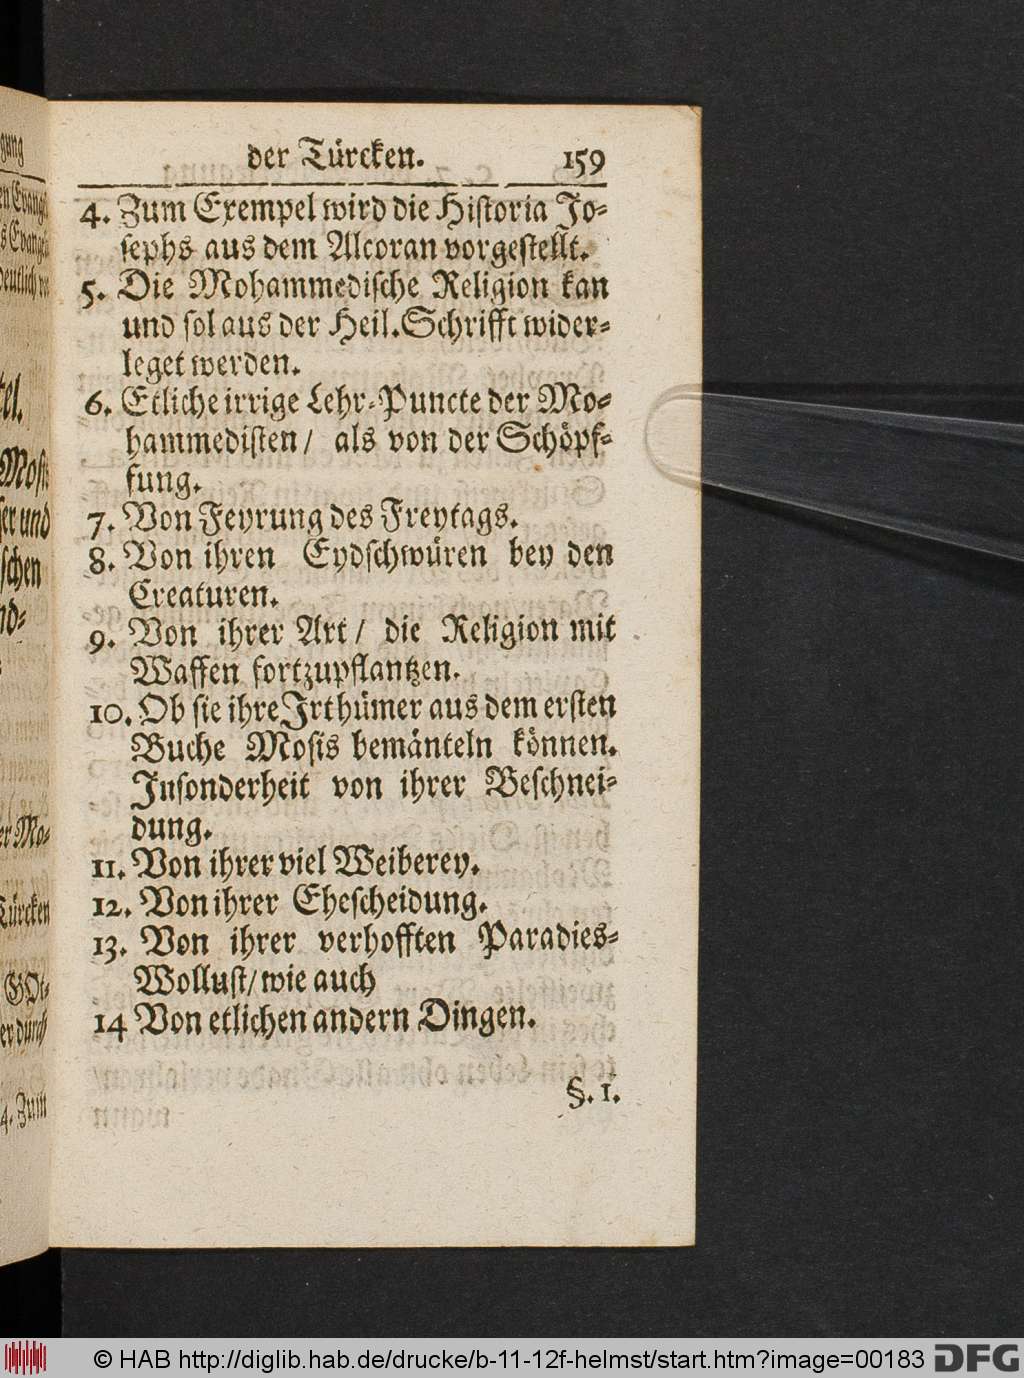 der Türcken. 159
4. Zum Exempel wird die Historia Jo-
sephs aus dem Alcoran vorgestellt.
5. Die Mohammedische Religion kan
und sol aus der Heil. Schrifft wider-
leget werden.
6. Etliche irrige Lehr-Puncte der Mo-
hammedisten / als von der Schöpf-
fung.
7. Von Feyrung des Freytags.
8. Von ihren Eydschwüren bey den
Creaturen.
9. Von ihrer Art / die Religion mit
Waffen fortzupflantzen.
10. Ob sie ihre Jrthümer aus dem ersten
Buche Mosis bemänteln können.
Insonderheit von ihrer Beschnei-
dung.
11. Von ihrer viel Weiberey.
12. Von ihrer Ehescheidung.
13. Von ihrer verhofften Paradies-
Wollust / wie auch
14 Von etlichen andern Dingen.
§. 1.
© HAB http://diglib.hab.de/drucke/b-11-12f-helmst/start.htm?image=00183 DFG